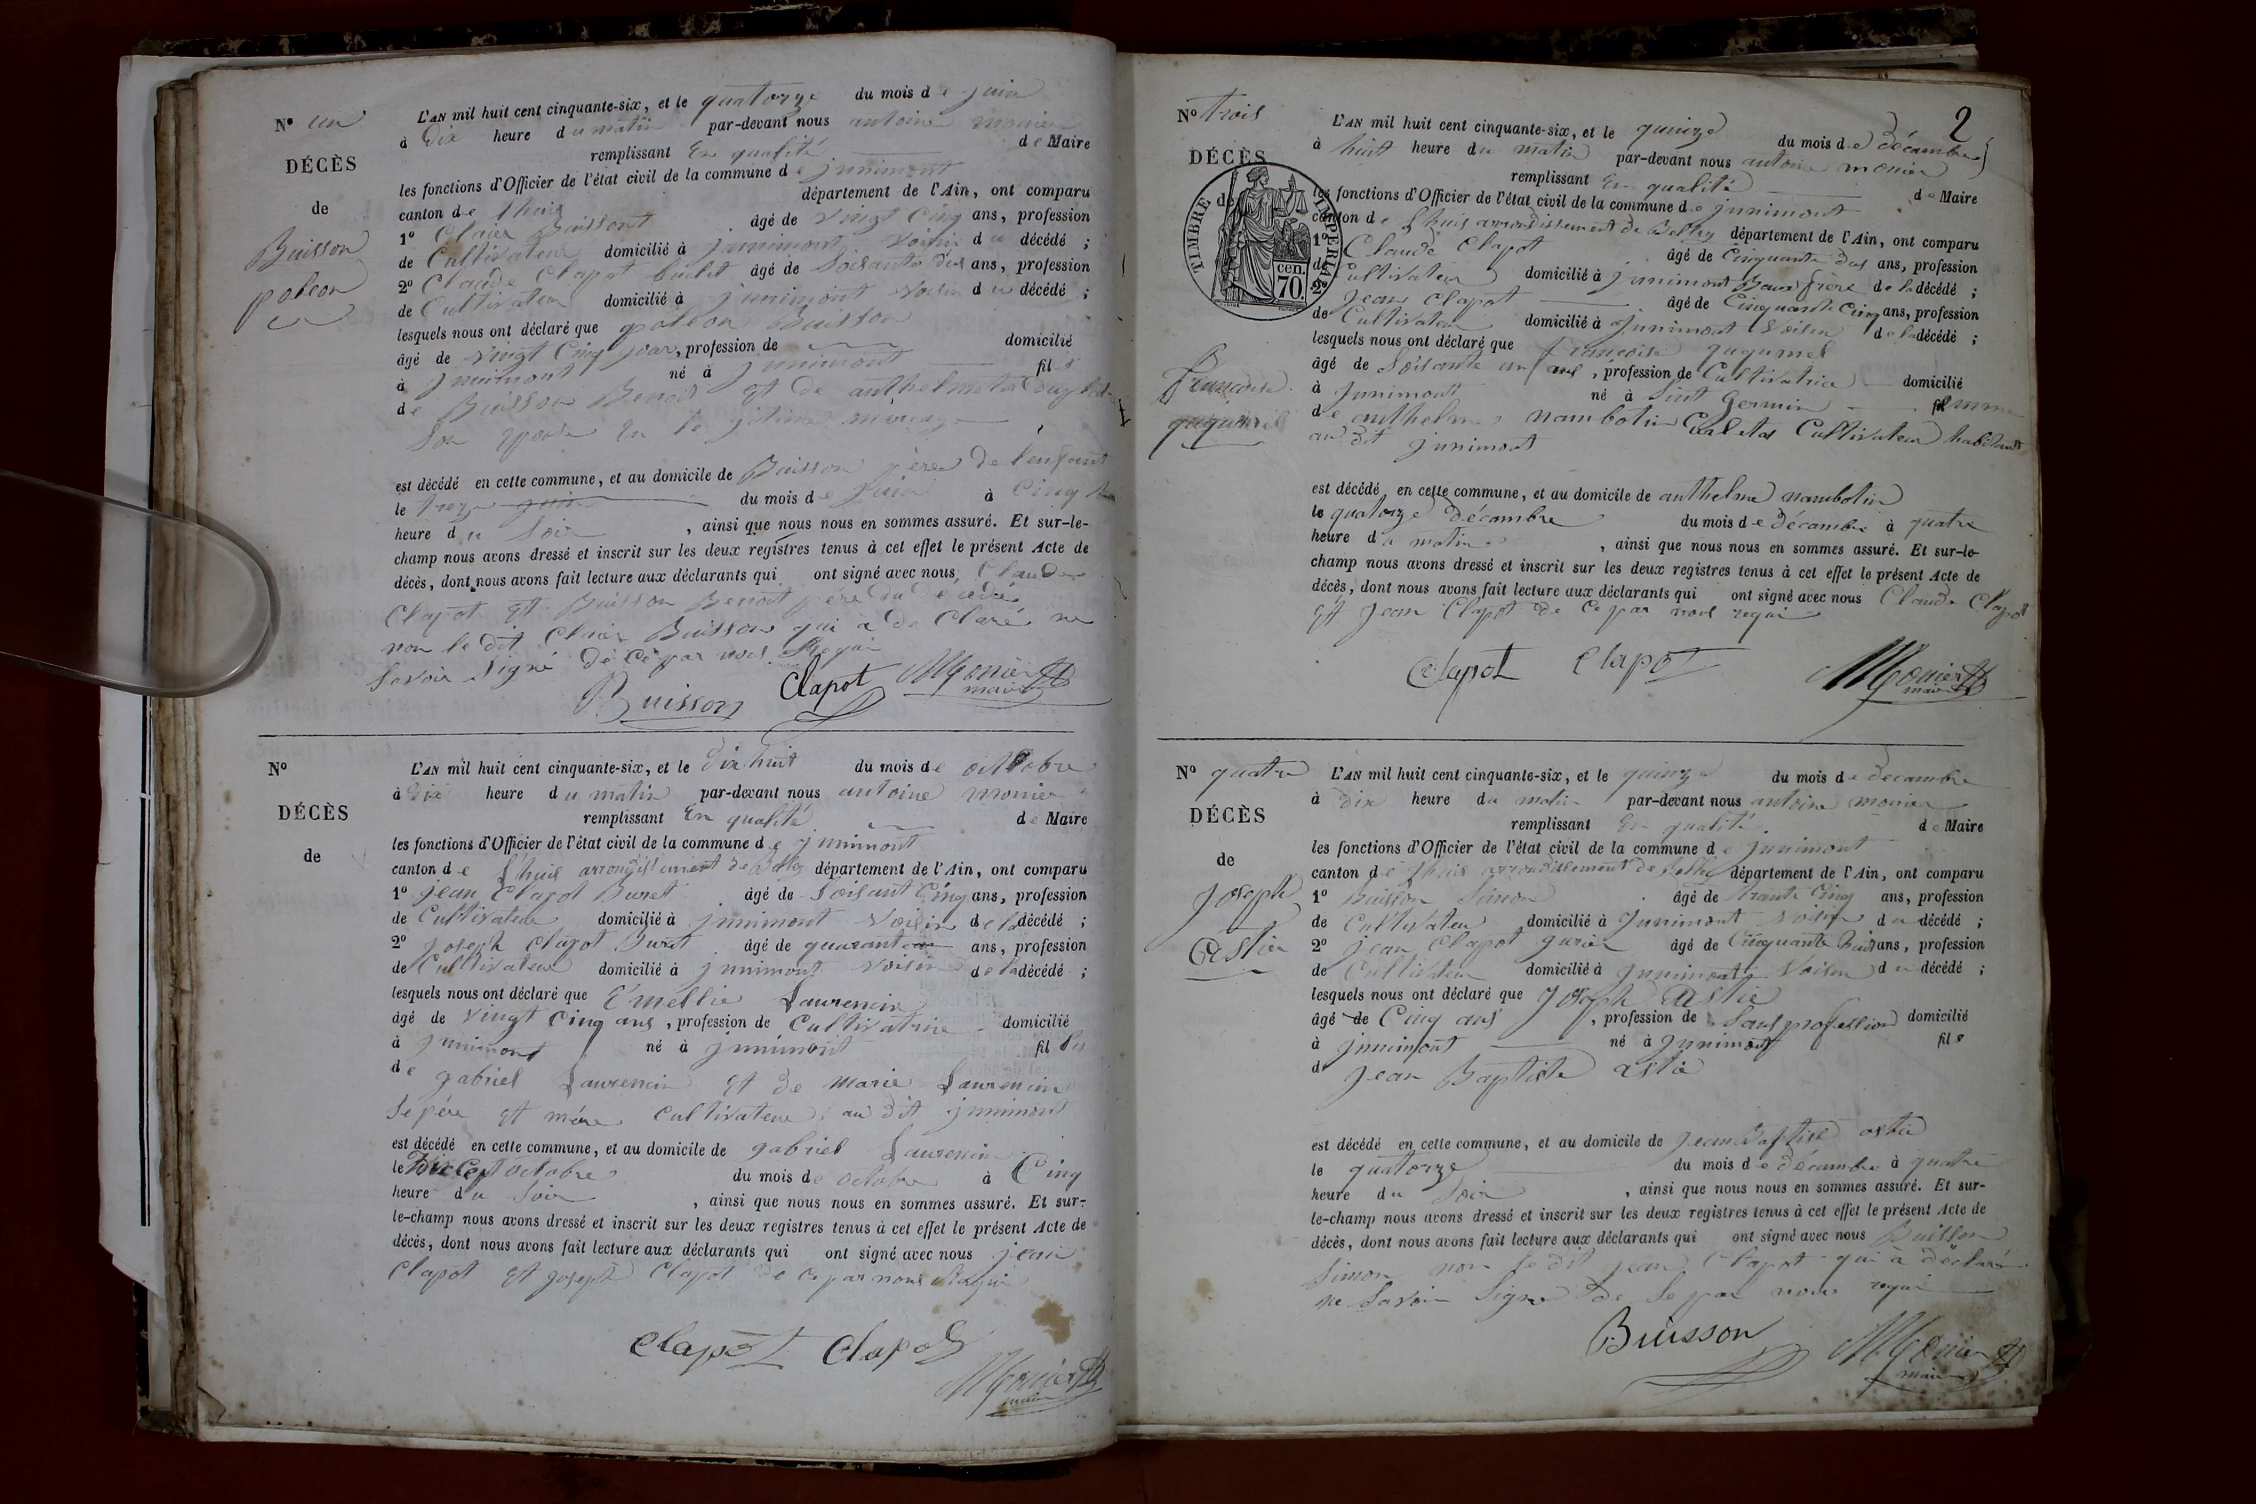 N° un
DÉCÈS
de
Buisson
poleon
L'AN mil huit cent cinquante-six, et le quatorze du mois de juin
à Dix heure du matin par-devant nous antoine monier
remplissant En qualité de Maire
les fonctions d'Officier de l'état civil de la commune de junimont
canton de l'huis département de l'Ain, ont comparu
1° Claier Buissont âgé de vingt Cinq ans, profession
de Cultivateur domicilié à junimont voisin du décédé ;
2° Claude Clapot âgé de Soisante dus ans, profession
de Cultivateur domicilié à junimont voisin du décédé ;
lesquels nous ont déclaré que poleon Buisson
âgé de vingt Cinq jour, profession de domicilié
à junimont né à junimont fils
de Buisson Benoit et de anthelmeta
Son en
est décédé en cette commune, et au domicile de Buisson père de l'enfant
le treze juin du mois de juin à Cinq
heure du Soir , ainsi que nous nous en sommes assuré. Et sur-le-
champ nous avons dressé et inscrit sur les deux registres tenus à cet effet le présent Acte de
décès, dont nous avons fait lecture aux déclarants qui ont signé avec nous Claude
Clapot Et Buisson Benoit père du décédé
non le dit Claier Buisson qui a de Claré ne
Savoir Signé de Ce par nous Requi
Buisson Clapot Monier
maire
N°
DÉCÈS
de
L'AN mil huit cent cinquante-six, et le Dix huit du mois de octobre
à Dix heure du matin par-devant nous antoine monier
remplissant En qualité de Maire
les fonctions d'Officier de l'état civil de la commune de junimont
canton de l'huis arrondissement de Belley département de l'Ain, ont comparu
1° jean Clapot Buret âgé de Soisant Cinq ans, profession
de Cultivateur domicilié à junimont voisin de la décédé ;
2° joseph Clapot Buret âgé de quarante ans, profession
de Cultivateur domicilié à junimont voisin de la décédé ;
lesquels nous ont déclaré que Emellie Laurencin
âgé de vingt Cinq ans, profession de Cultivatrice domicilié
à junimont né à junimont fil
de gabriel Laurencin Et de marie Laurencin
Se père Et mère Cultivateur au dit junimont
est décédé en cette commune, et au domicile de gabriel Laurencin
le Dix Cept octobre du mois de octobre à Cinq
heure du Soir , ainsi que nous nous en sommes assuré. Et sur-
le-champ nous avons dressé et inscrit sur les deux registres tenus à cet effet le présent Acte de
décès, dont nous avons fait lecture aux déclarants qui ont signé avec nous jean
Clapot Et joseph Clapot de Ce par nous Requi
Clapot Clapot
Monier
maire
2
N° trois
DÉCÈS
de
TIMBRE IMPERIAL
cen.
70.
Françoise
guguenel
L'AN mil huit cent cinquante-six, et le quinze du mois de décambre
à huit heure du matin par-devant nous antoine monier
remplissant En qualité de Maire
les fonctions d'Officier de l'état civil de la commune de junimont
canton de l'huis arrondissement de Belley département de l'Ain, ont comparu
1° Claude Clapot âgé de Cinquante dus ans, profession
de Cultivateur domicilié à junimont Beau frère de la décédé ;
2° jean Clapot âgé de Cinquante Cinq ans, profession
de Cultivateur domicilié à junimont voisin de la décédé ;
lesquels nous ont déclaré que françoise
âgé de Soisante un ans, profession de Cultivatrice domicilié
à junimont né à Sint Germin
de anthelme nambotin Cultivateur habitant
au dit junimont
est décédé en cette commune, et au domicile de anthelme nambotin
le quatorze décambre du mois de décambre à quatre
heure du matin , ainsi que nous nous en sommes assuré. Et sur-le-
champ nous avons dressé et inscrit sur les deux registres tenus à cet effet le présent Acte de
décès, dont nous avons fait lecture aux déclarants qui ont signé avec nous Claude Clapot
Et jean Clapot de Ce par nous requi
Clapot Clapot Monier
maire
N° quatre
DÉCÈS
de
joseph
Astier
L'AN mil huit cent cinquante-six, et le quinze du mois de decambre
à Dix heure du matin par-devant nous antoine monier
remplissant En qualité de Maire
les fonctions d'Officier de l'état civil de la commune de junimont
canton de l'huis arrondissement de Belley département de l'Ain, ont comparu
1° Buisson Simon âgé de trante Cinq ans, profession
de Cultivateur domicilié à junimont voisin du décédé ;
2° jean Clapot âgé de Cinquante huit ans, profession
de Cultivateur domicilié à junimont voisin du décédé ;
lesquels nous ont déclaré que joseph Astie
âgé de Cinq ans , profession de Sans profession domicilié
à junimont né à junimont fils
de jean Baptiste astie
est décédé en cette commune, et au domicile de jean Baptise astie
le quatorze du mois de décambre à quatre
heure du Soir , ainsi que nous nous en sommes assuré. Et sur-
le-champ nous avons dressé et inscrit sur les deux registres tenus à cet effet le présent Acte de
décès, dont nous avons fait lecture aux déclarants qui ont signé avec nous Buisson
Simon non le dit jean Clapot qui à déclaré
ne Savoir Signer de Se par nous requi
Buisson Monier
maire